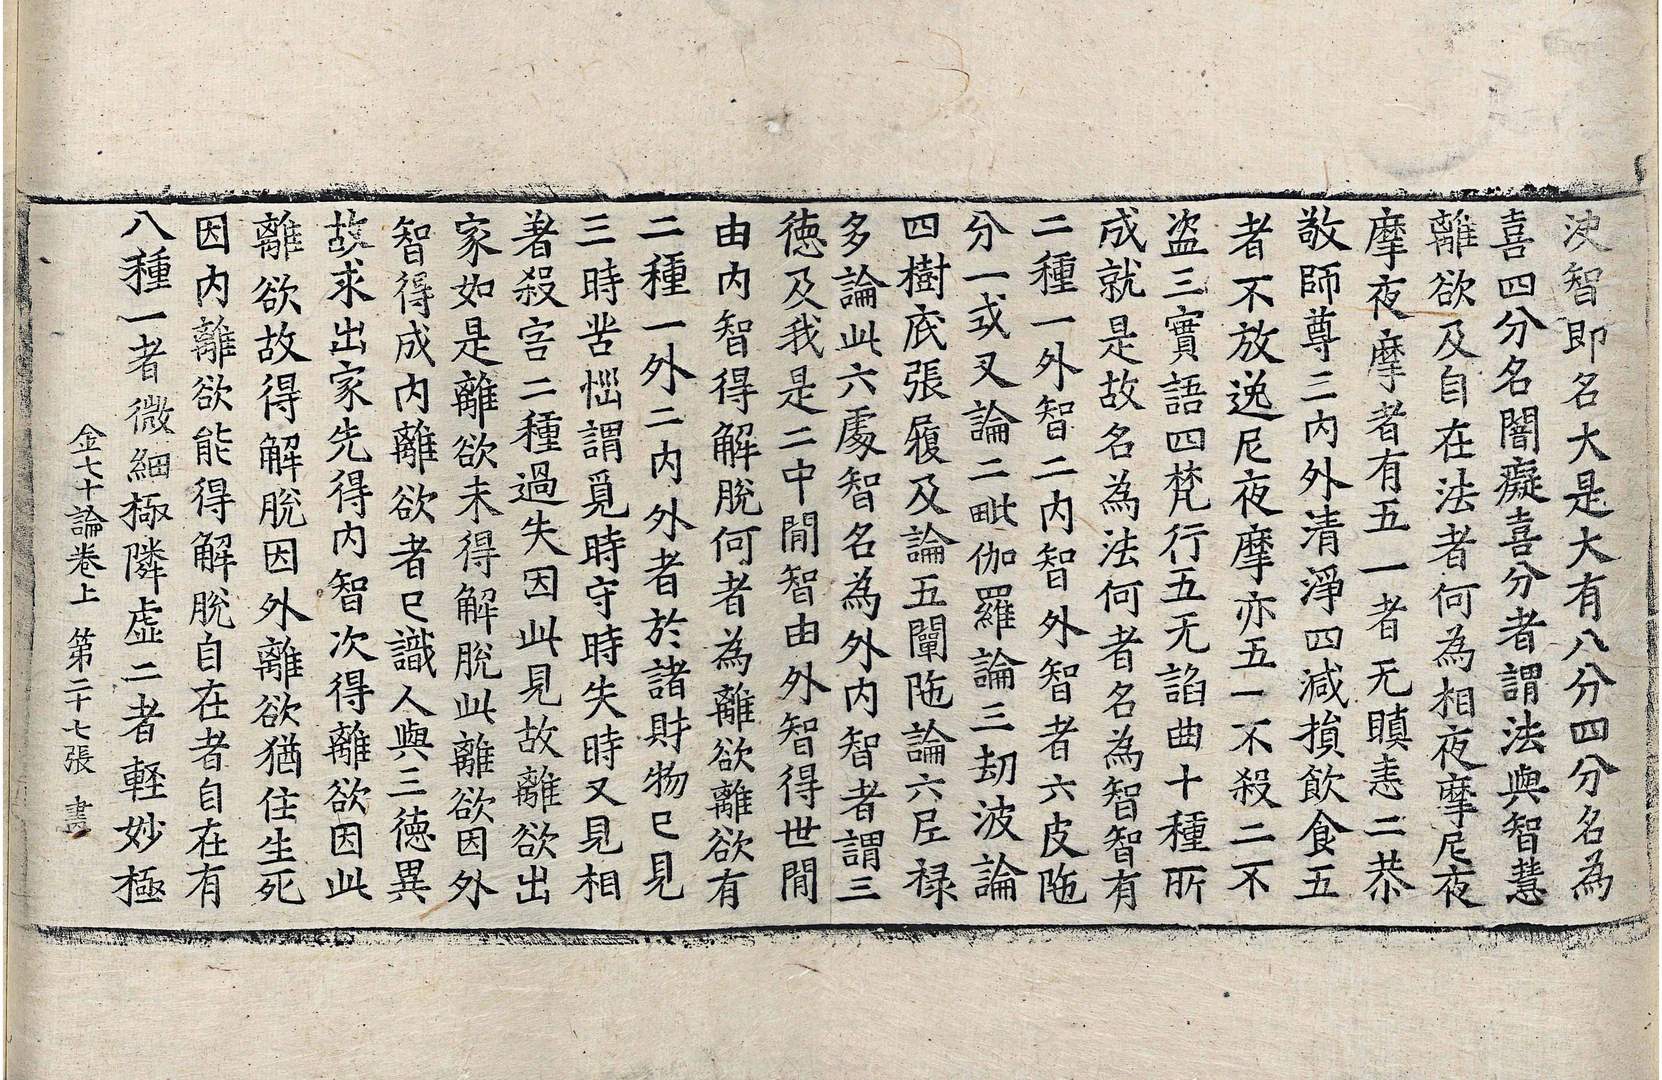 決智即名大是大有八分四分名為
喜四分名闇癡喜分者謂法與智慧
離欲及自在法者何為相夜摩尼夜
摩夜摩者有五一者无瞋恚二恭
敬師尊三內外清淨四減損飲食五
者不放逸尼夜摩亦五一不殺二不
盜三實語四梵行五无諂曲十種所
成就是故名為法何者名為智智有
二種一外智二內智外智者六皮陁
分一式叉論二毗伽羅論三刼波論
四樹底張履及論五闡陁論六尼禄
多論此六處智名為外內智者謂三
徳及我是二中閒智由外智得世閒
由內智得解脫何者為離欲離欲有
二種一外二內外者於諸財物已見
三時苦惱謂覓時守時失時又見相
著殺害二種過失因此見故離欲出
家如是離欲未得解脫此離欲因外
智得成內離欲者已識人與三徳異
故求出家先得內智次得離欲因此
離欲故得解脫因外離欲猶住生死
因內離欲能得解脫自在者自在有
八種一者微細極隣虛二者輕妙極
金七十論卷上 第二十七張 畫